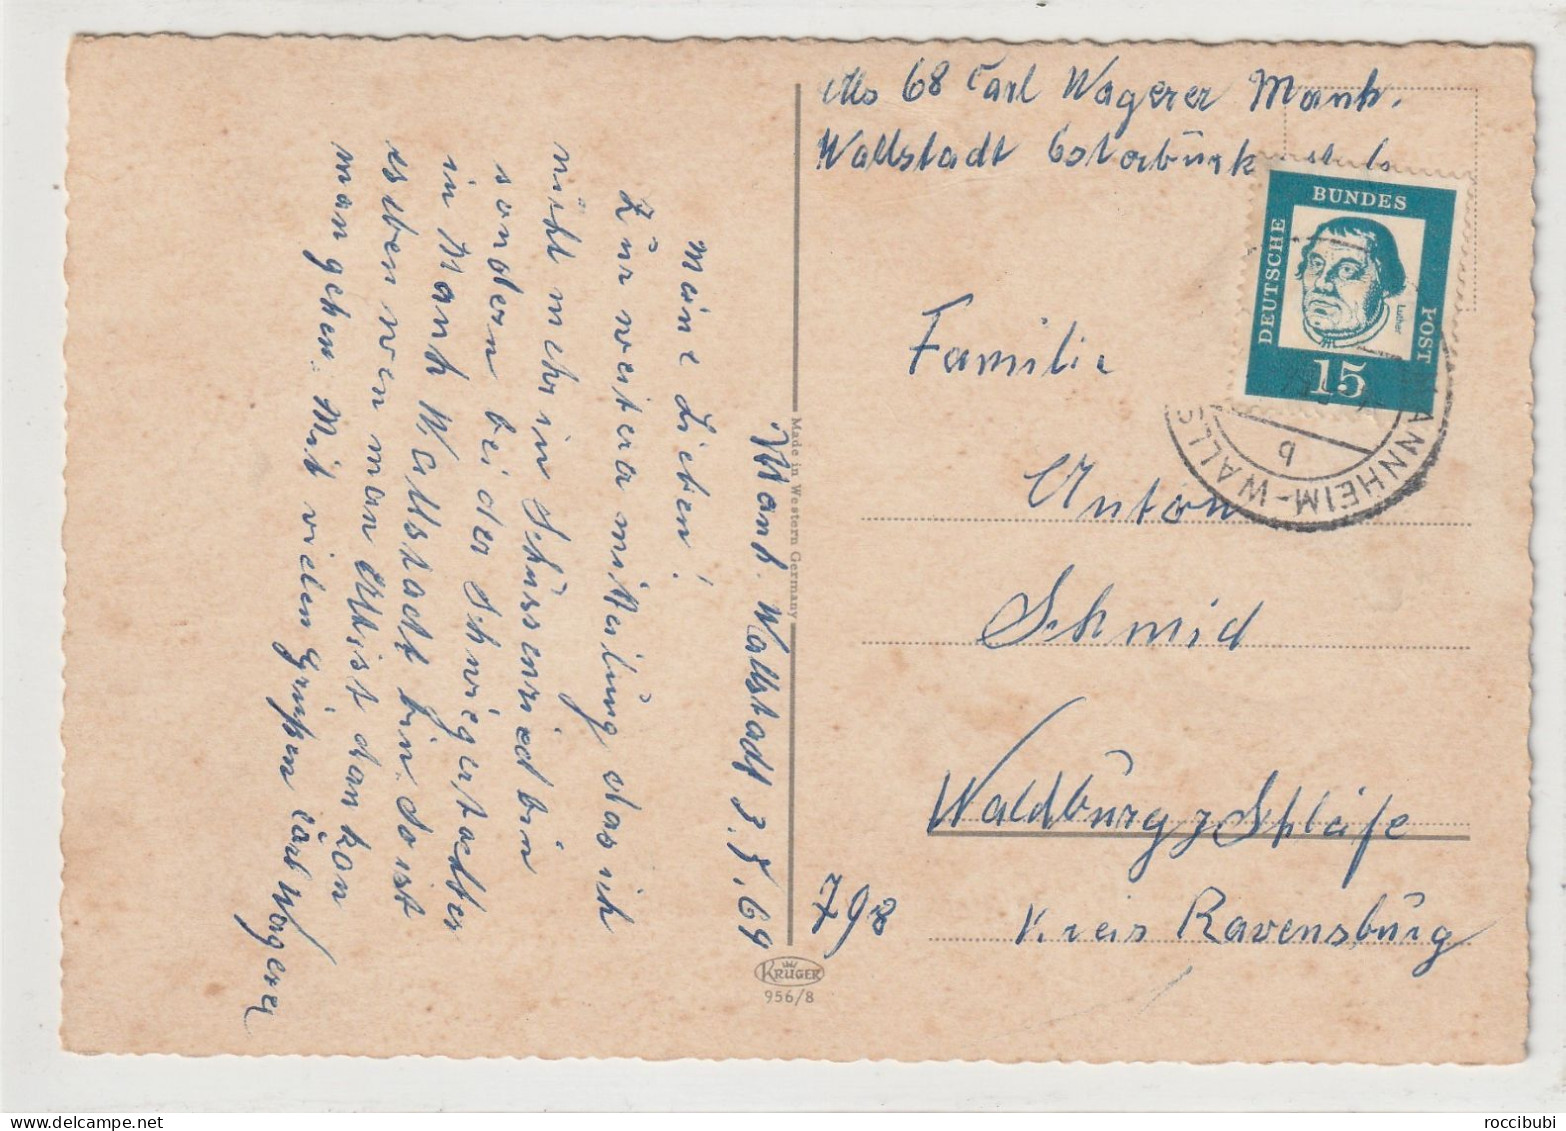 68 Carl Wagerer Manh.
Wallstadt
Manh. Wallstadt 3.5.64
Meine Lieben!
Zur weitera mitteilung das ich
nicht mehr in Schussenried bin
sondern bei der Schwiegertochter
in Manh Wallstadt bin. So ist
es eben wen man Alt ist dan kan
man gehen. Mit vielen Grüßen Carl Wagerer
Made in Western Germany
KRÜGER
956/8
DEUTSCHE
BUNDES
POST
Luther
15
MANNHEIM-WALLS
b
Familie
Anton
Schmid
Waldburg
798
Kreis Ravensburg
roccibubi